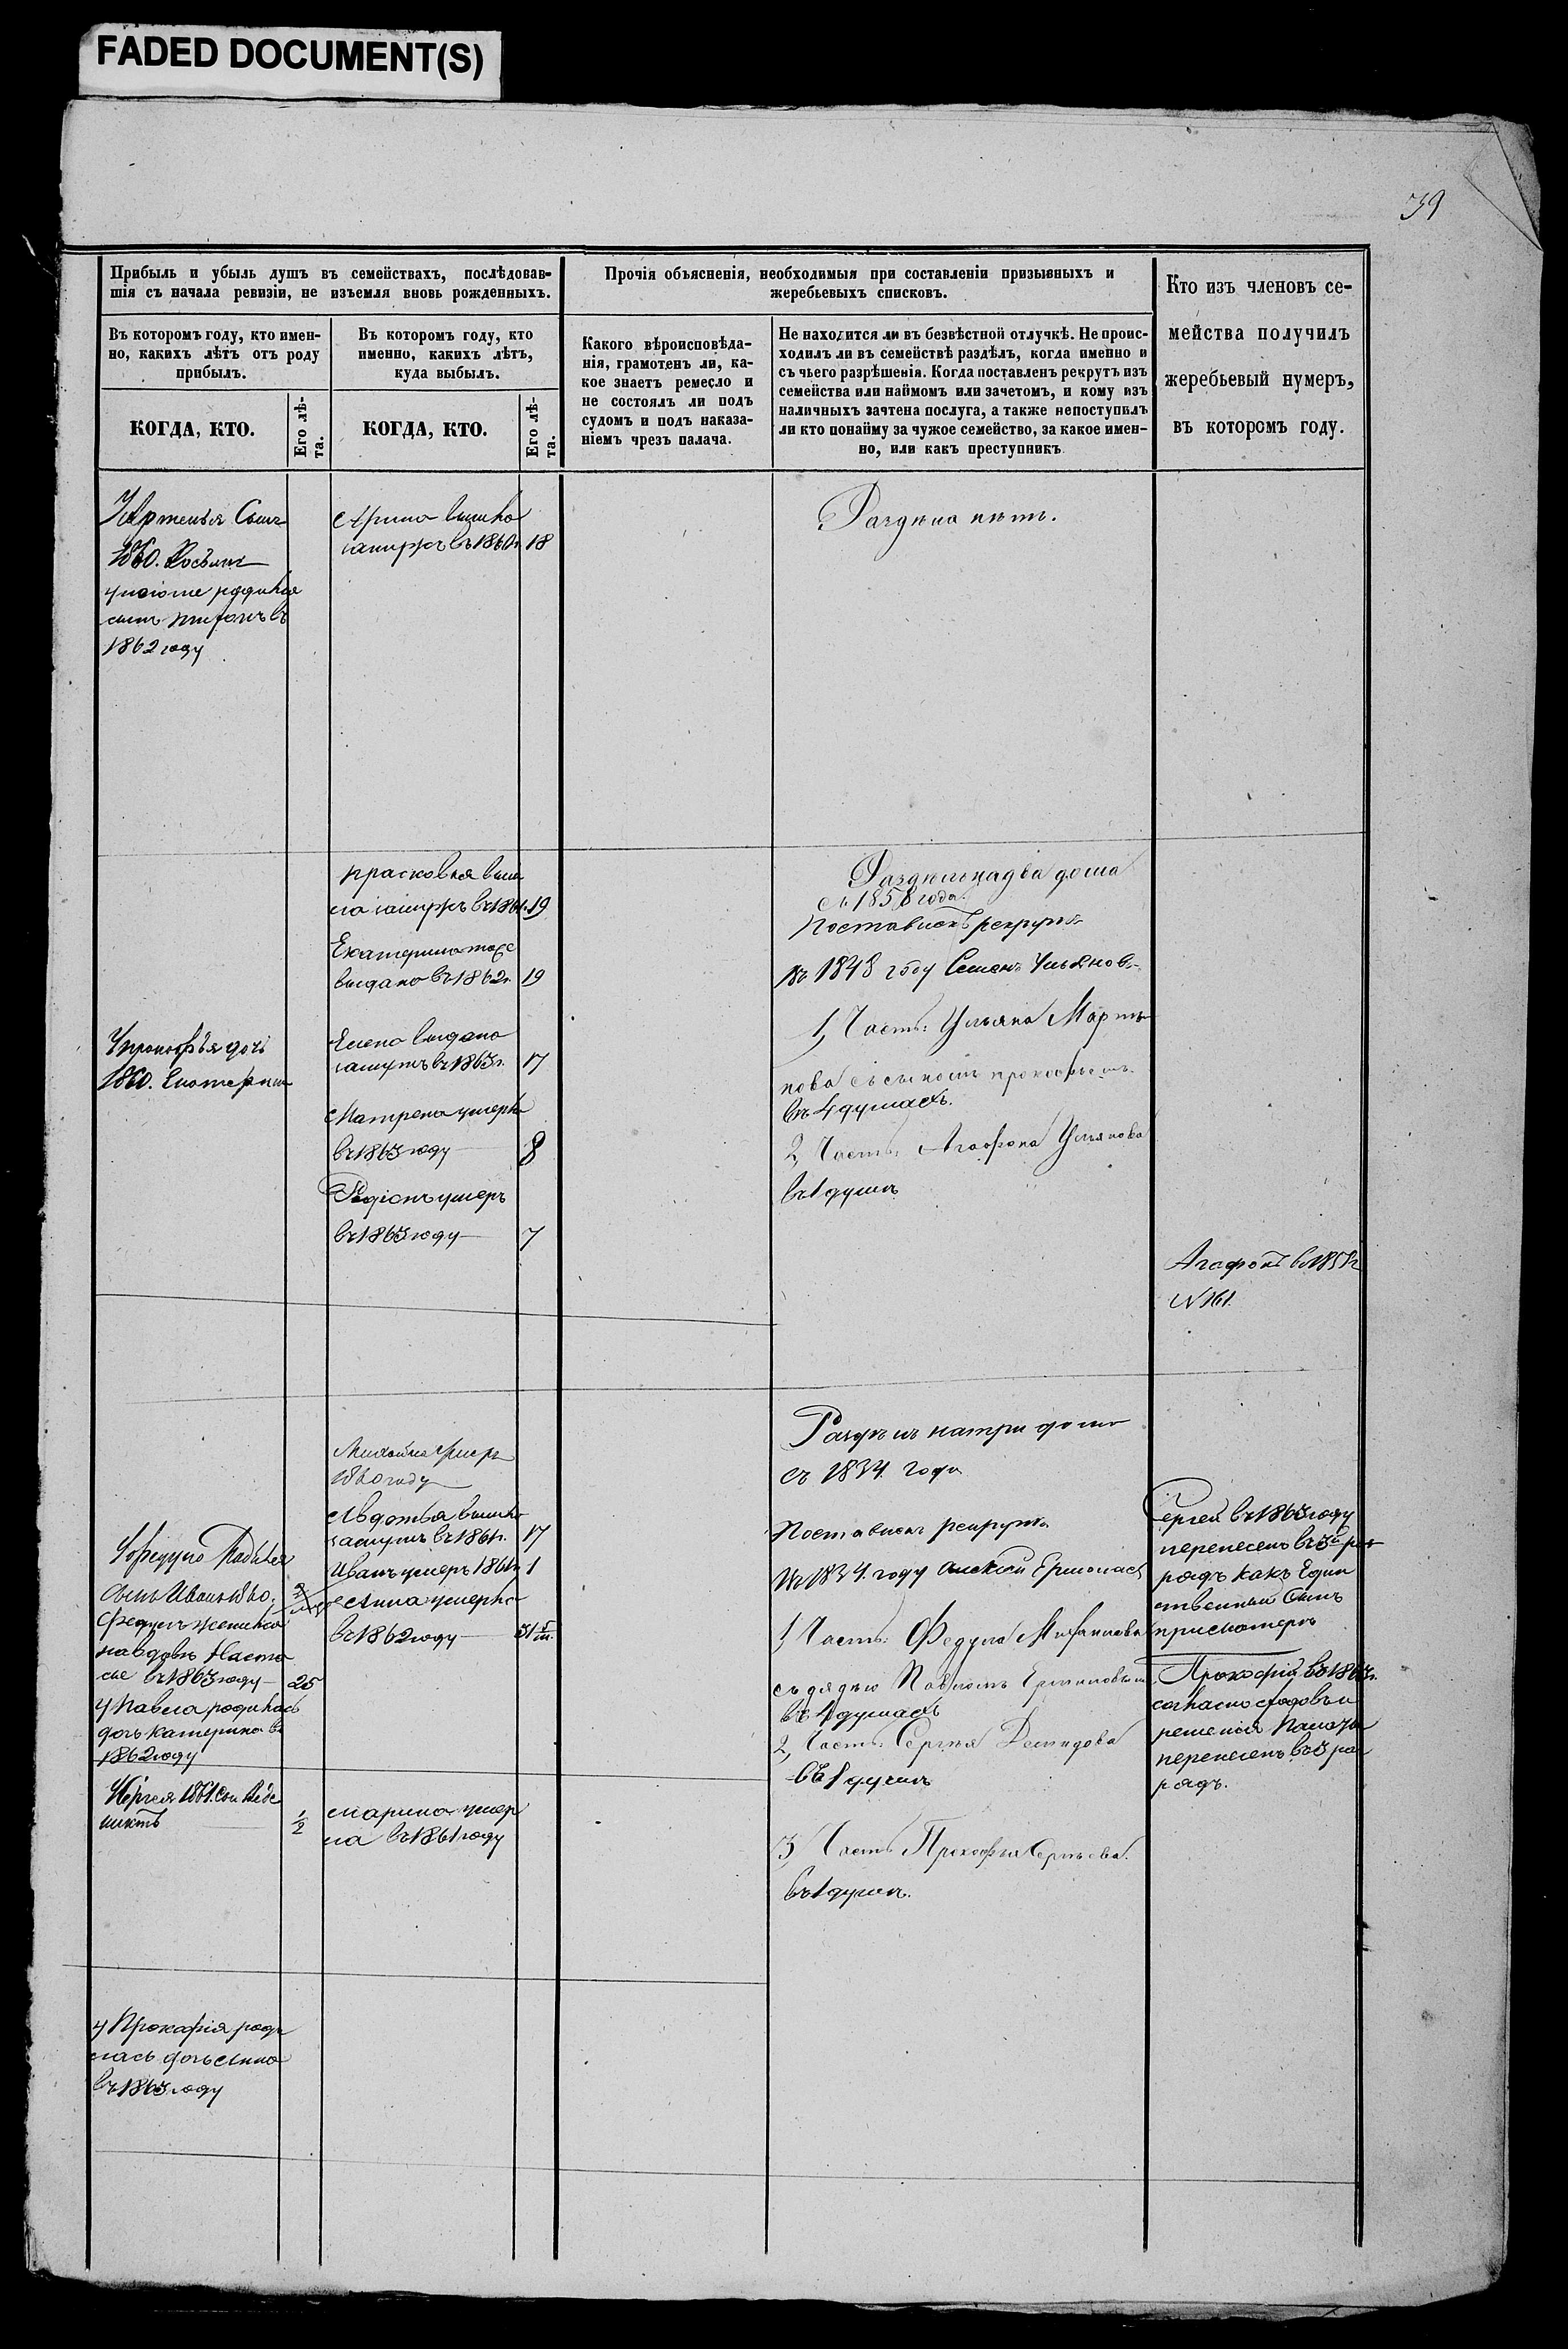 FADED DOCUMENT(S)
39
Прибыль и убыль душъ въ семействахъ, послѣдовав-
шія съ начала ревизіи, не изъемля вновь рожденныхъ.
Въ которомъ году, кто имен-
но, какихъ лѣтъ отъ роду
прибылъ.
КОГДА, КТО.
Его лѣ-
та.
Въ которомъ году, кто
именно, какихъ лѣтъ,
куда выбылъ.
КОГДА, КТО.
Его лѣ-
та.
Прочія объясненія, необходимыя при составленіи призывныхъ и
жеребьевыхъ списковъ.
Какого вѣроисповѣда-
нія, грамотенъ ли, ка-
кое знаетъ ремесло и
не состоялъ ли подъ
судомъ и подъ наказа-
ніемъ чрезъ палача.
Не находится ли въ безвѣстной отлучкѣ. Не проис-
ходилъ ли въ семействѣ раздѣлъ, когда именно и
съ чьего разрѣшенія. Когда поставленъ рекрутъ изъ
семейства или наймомъ или зачетомъ, и кому изъ
наличныхъ зачтена послуга, а также непоступилъ
ли кто понайму за чужое семейство, за какое имен-
но, или какъ преступникъ
Кто изъ членовъ се-
мейства получилъ
жеребьевый нумеръ,
въ которомъ году.
1862 году
Арина
въ 1860 г. 18
Раздѣла нѣтъ.
прасковья выш
ла замужъ въ 1861. 19
Екатерина тоже
выдана въ 1862 г. 19
Елена выдана
замужъ въ 1863 г. 17
Матрена умерла
въ 1863 году 8
Радіонъ умеръ
въ 1863 году 7
У прокофья дочь
1860. Екатерина
Раздѣлъ на два дома
съ 1858 года.
Поставленъ рекрутъ
въ 1848 году Семенъ Ульяновъ
1, Часть: Ульяна Марты
нова съ сыномъ прокофьемъ
въ 4 душахъ.
2, Часть: Агафона Ульянова
въ 1 душѣ
Агафонъ въ
N 161.
Михайла умеръ
1860 году
Авдотья вышла
замужъ въ 1861 г. 17
Иванъ умеръ 1861 г. 1
Анна умерла
въ 1862 году
сынъ Иванъ 1860.
на вдовѣ Наста
сье въ 1863 году 25
у Павела родилась
дочь катерина въ
1862 году
Раздѣлъ на три дома
съ 1834. года
Поставленъ рекрутъ
въ 1834. году
1, Часть: Федула
съ дядею Павломъ
въ 4 душахъ
2, Часть: Сергея Демидова
въ 1 душѣ
3, Часть Прокофья Сергѣева.
въ 1 душѣ.
Сергей въ 1863 году
перенесенъ въ 3й раз
рядъ какъ Един
ственный сынъ
при матери
Прокофій въ 1863 г.
согласно
решенія палаты
перенесенъ въ 3 раз
рядъ.
У Сергея 1861. сын
½
марина умер
ла въ 1861 году
у Прокафія роди
лась дочь Анна
въ 1863 году